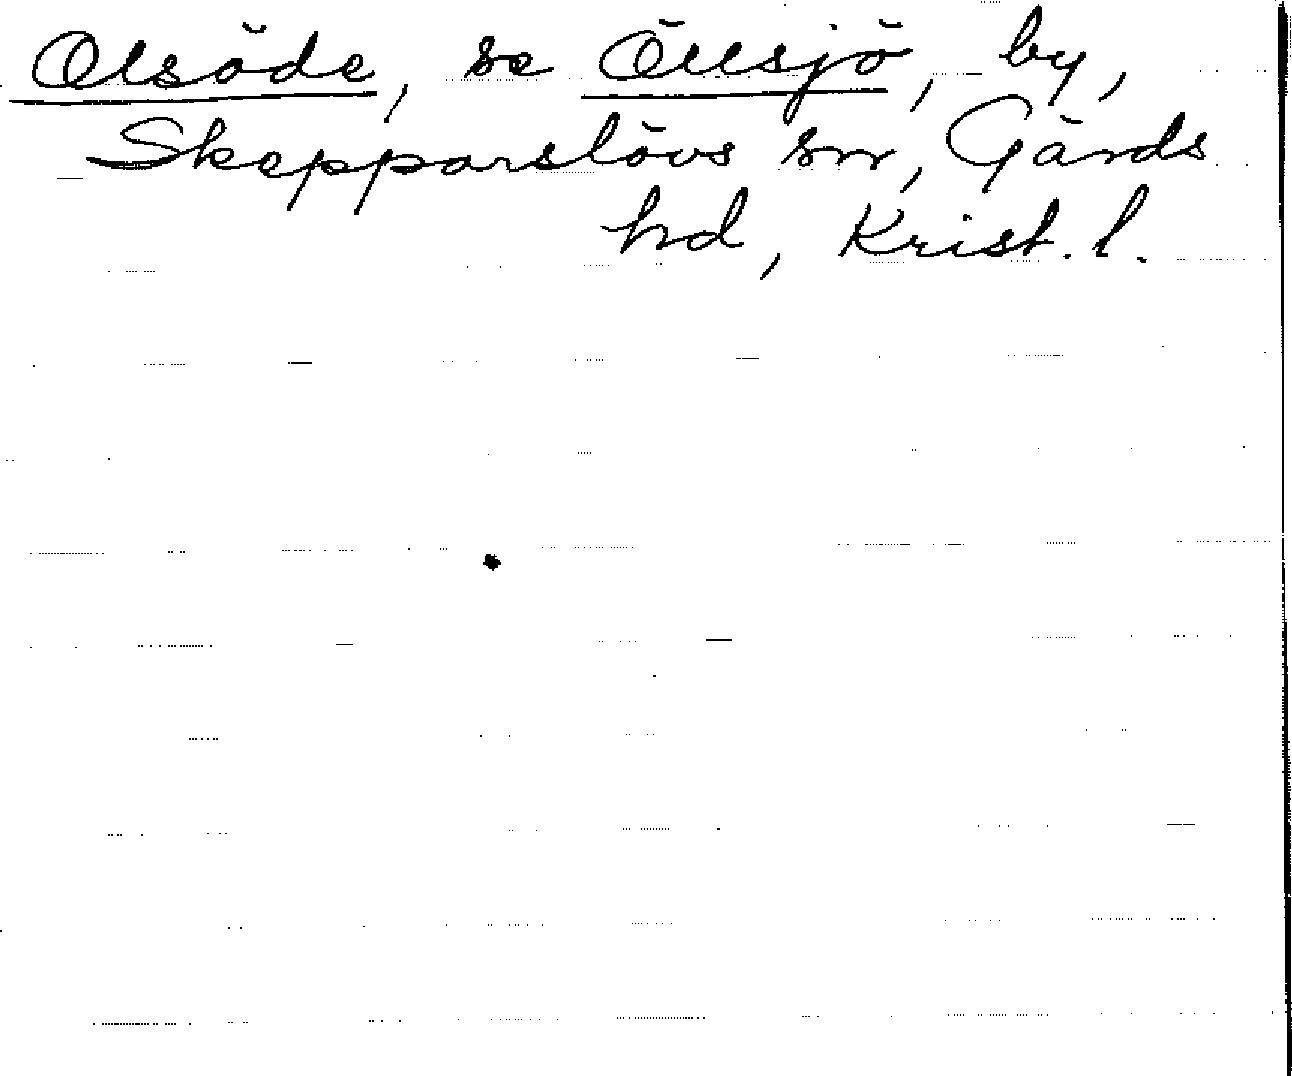 Olsöde, se Öllsjö, by,
Skepparslövs sn, Gärds
hd, Krist. l.